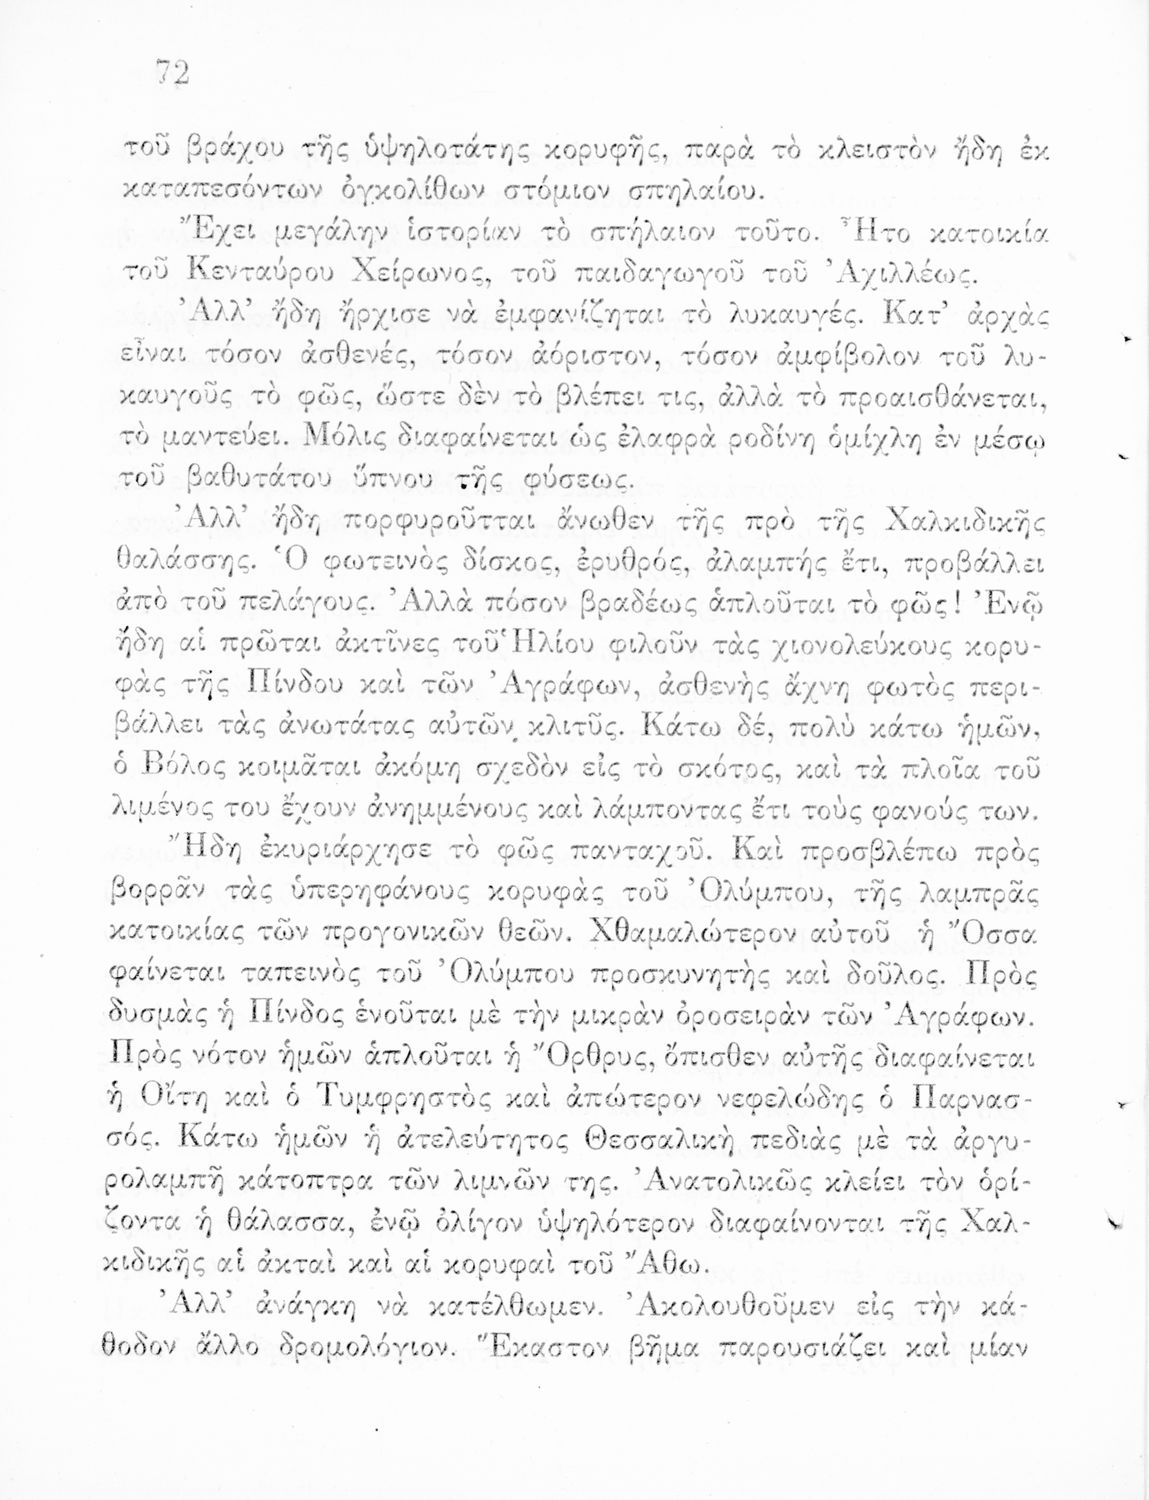 72
τοῦ βράχου τῆς ὑψηλοτάτης κορυφῆς, παρὰ τὸ κλειστὸν ἤδη ἐκ
καταπεσόντων ὀγκολίθων στόμιον σπηλαίου.
Ἔχει μεγάλην ἱστορίαν τὸ σπήλαιον τοῦτο. Ἦτο κατοικία
τοῦ Κενταύρου Χείρωνος, τοῦ παιδαγωγοῦ τοῦ Ἀχιλλέως.
Ἀλλ’ ἤδη ἤρχισε νὰ ἐμφανίζηται τὸ λυκαυγές. Κατ’ ἀρχὰς
εἶναι τόσον ἀσθενές, τόσον ἀόριστον, τόσον ἀμφίβολον τοῦ λυ-
καυγοῦς τὸ φῶς, ὥστε δὲν τὸ βλέπει τις, ἀλλὰ τὸ προαισθάνεται,
τὸ μαντεύει. Μόλις διαφαίνεται ὡς ἐλαφρὰ ροδίνη ὁμίχλη ἐν μέσῳ
τοῦ βαθυτάτου ὕπνου τῆς φύσεως.
Ἀλλ’ ἤδη πορφυροῦται ἄνωθεν τῆς πρὸ τῆς Χαλκιδικῆς
θαλάσσης. Ὁ φωτεινὸς δίσκος, ἐρυθρός, ἀλαμπής ἔτι, προβάλλει
ἀπὸ τοῦ πελάγους. Ἀλλὰ πόσον βραδέως ἁπλοῦται τὸ φῶς! Ἐνῷ
ἤδη αἱ πρῶται ἀκτῖνες τοῦ Ἡλίου φιλοῦν τὰς χιονολεύκους κορυ-
φὰς τῆς Πίνδου καὶ τῶν Ἀγράφων, ἀσθενὴς ἄχνη φωτὸς περι-
βάλλει τὰς ἀνωτάτας αὐτῶν κλιτῦς. Κάτω δέ, πολὺ κάτω ἡμῶν,
ὁ Βόλος κοιμᾶται ἀκόμη σχεδὸν εἰς τὸ σκότος, καὶ τὰ πλοῖα τοῦ
λιμένος του ἔχουν ἀνημμένους καὶ λάμποντας ἔτι τοὺς φανούς των.
Ἤδη ἐκυριάρχησε τὸ φῶς πανταχοῦ. Καὶ προσβλέπω πρὸς
βορρᾶν τὰς ὑπερηφάνους κορυφὰς τοῦ Ὀλύμπου, τῆς λαμπρᾶς
κατοικίας τῶν προγονικῶν θεῶν. Χθαμαλώτερον αὐτοῦ ἡ Ὄσσα
φαίνεται ταπεινὸς τοῦ Ὀλύμπου προσκυνητὴς καὶ δοῦλος. Πρὸς
δυσμὰς ἡ Πίνδος ἑνοῦται μὲ τὴν μικρὰν ὀροσειρὰν τῶν Ἀγράφων.
Πρὸς νότον ἡμῶν ἁπλοῦται ἡ Ὄρθρυς, ὄπισθεν αὐτῆς διαφαίνεται
ἡ Οἴτη καὶ ὁ Τυμφρηστὸς καὶ ἀπώτερον νεφελώδης ὁ Παρνασ-
σός. Κάτω ἡμῶν ἡ ἀτελεύτητος Θεσσαλικὴ πεδιὰς μὲ τὰ ἀργυ-
ρολαμπῆ κάτοπτρα τῶν λιμνῶν της. Ἀνατολικῶς κλείει τὸν ὁρί-
ζοντα ἡ θάλασσα, ἐνῷ ὀλίγον ὑψηλότερον διαφαίνονται τῆς Χαλ-
κιδικῆς αἱ ἀκταὶ καὶ αἱ κορυφαὶ τοῦ Ἄθω.
Ἀλλ’ ἀνάγκη νὰ κατέλθωμεν. Ἀκολουθοῦμεν εἰς τὴν κά-
θοδον ἄλλο δρομολόγιον. Ἕκαστον βῆμα παρουσιάζει καὶ μίαν